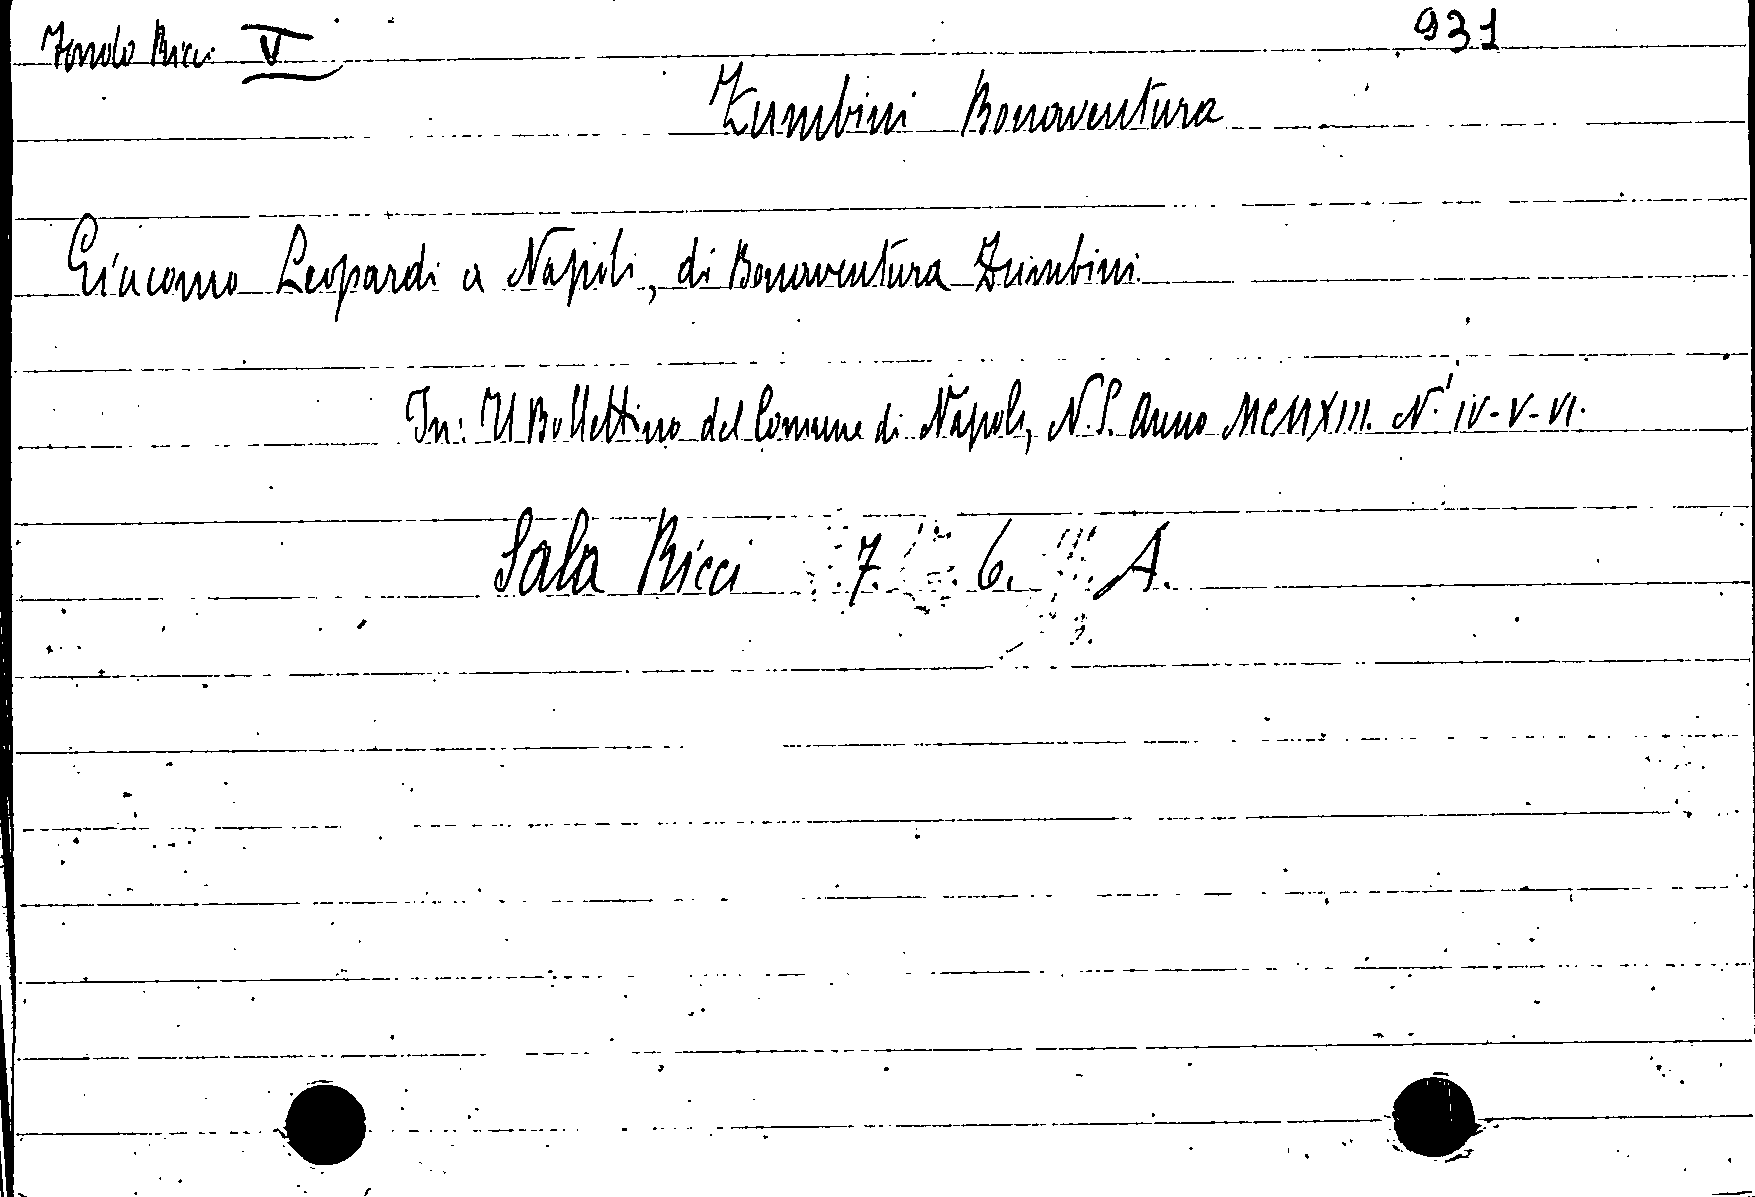 Fondo Ricci V 931
Zumbini Bonaventura
Giacomo Leopardi a Napoli, di Bonaventura Zumbini.
In: Il Bollettino del Comune di Napoli, N.S. Anno MCMXIII. N.i IV-V-VI.
Sala Ricci 7. 6. A.